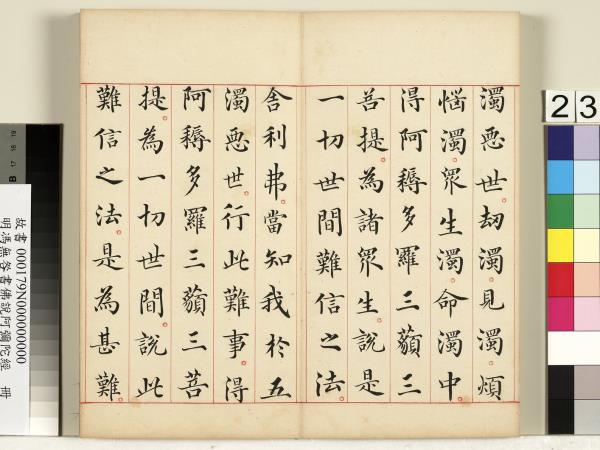 濁惡世。劫濁。見濁。煩
惱濁。眾生濁。命濁中。
得阿耨多羅三藐三
菩提。為諸眾生。說是
一切世間難信之法。
舍利弗。當知我於五
濁惡世。行此難事。得
阿耨多羅三藐三菩
提。為一切世間。說此
難信之法。是為甚難。
故書 000179N000000000
明馮無咎書佛說阿彌陀經 冊
23
B